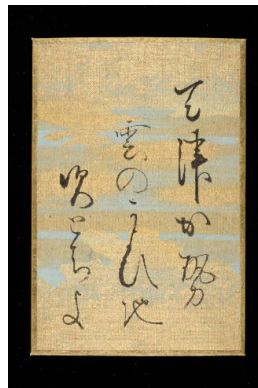 天津か勢
雲のかよひ地
吹とちよ